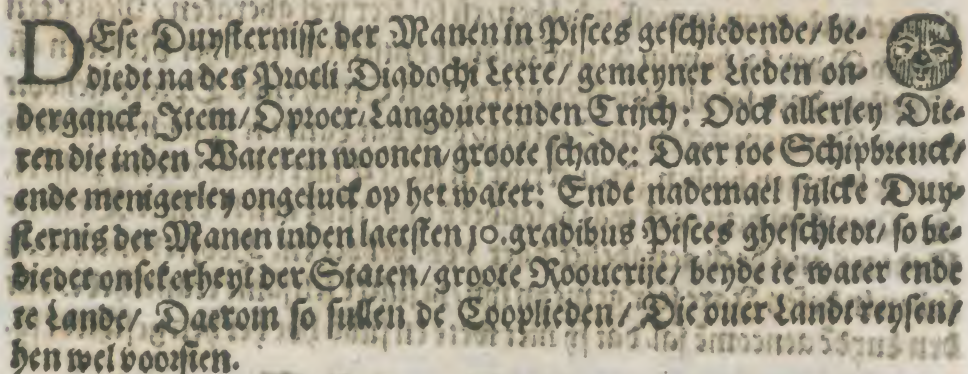 DEse Duysternisse der Manen in Pisces geschiedende/ be-
diedt na des Procli Diadochi Leere/ gemeyner Lieden on-
derganck, Item/ Oproer/ Langduerenden Crijch: Oock allerley Die-
ren die inden Wateren woonen/ groote schade: Daer toe Schipbreuck/
ende menigerley ongeluck op het water: Ende nademael sulcke Duy-
sternis der Manen inden laetsten 10. gradibus Pisces gheschiedt/ so be-
diedet onsekerheyt der Staten/ groote Rooverije/ beyde te water ende
te Lande/ Daerom so sullen de Cooplieden/ Die over Landt reysen/
hen wel voorsien.